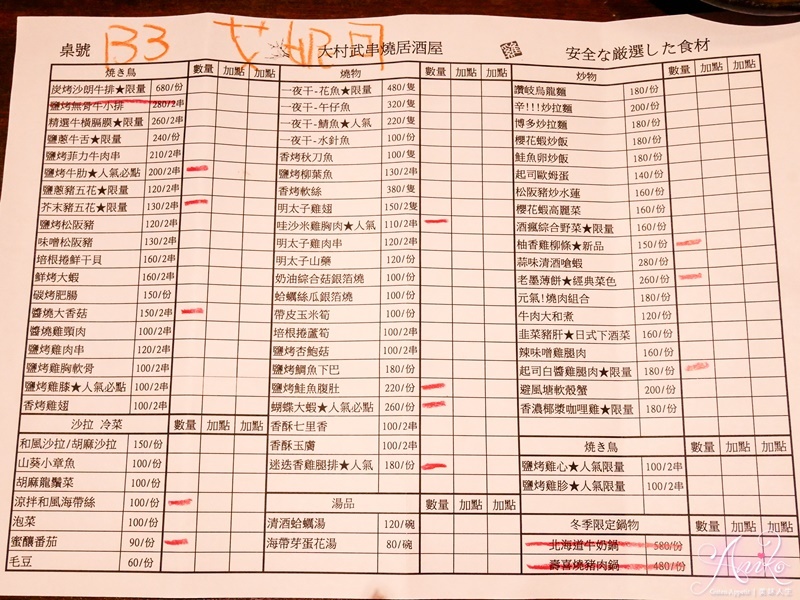 桌號 B3 艾妮可 大村武串燒居酒屋 安全な厳選した食材
焼き鳥 數量 加點 加點
炭烤沙朗牛排★限量 680/份
鹽烤無骨牛小排 280/2串
精選牛橫膈膜★限量 260/2串
鹽蔥牛舌★限量 240/份
鹽烤菲力牛肉串 210/2串
鹽烤牛肋★人氣必點 200/2串
鹽蔥豬五花★限量 120/2串
芥末豬五花★限量 130/2串
鹽烤松阪豬 120/2串
味噌松阪豬 130/2串
培根捲鮮干貝 160/2串
鮮烤大蝦 160/2串
碳烤肥腸 150/份
醬燒大香菇 150/2串
醬燒雞頸肉 100/2串
鹽烤雞肉串 120/2串
鹽烤雞胸軟骨 100/2串
鹽烤雞膝★人氣必點 100/2串
香烤雞翅 100/2串
沙拉 冷菜 數量 加點 加點
和風沙拉/胡麻沙拉 150/份
山葵小章魚 100/份
胡麻龍鬚菜 100/份
涼拌和風海帶絲 100/份
泡菜 100/份
蜜釀番茄 90/份
毛豆 60/份
燒物 數量 加點 加點
一夜干-花魚★限量 480/隻
一夜干-午仔魚 320/隻
一夜干-鯖魚★人氣 220/隻
一夜干-水針魚 100/份
香烤秋刀魚 100/隻
鹽烤柳葉魚 130/2串
香烤軟絲 380/隻
明太子雞翅 150/2隻
哇沙米雞胸肉★人氣 110/2串
明太子雞肉串 130/2串
明太子山藥 120/份
奶油綜合菇銀箔燒 100/份
蛤蠣絲瓜銀箔燒 100/份
帶皮玉米筍 100/份
培根捲蘆筍 100/2串
鹽烤杏鮑菇 100/2串
鹽烤鯛魚下巴 180/份
鹽烤鮭魚腹肚 220/份
蝴蝶大蝦★人氣必點 260/份
香酥七里香 100/2串
香酥玉膚 100/2串
迷迭香雞腿排★人氣 180/份
湯品 數量 加點 加點
清酒蛤蠣湯 120/碗
海帶芽蛋花湯 80/碗
炒物 數量 加點 加點
讚岐烏龍麵 180/份
辛!!!炒拉麵 200/份
博多炒拉麵 180/份
櫻花蝦炒飯 180/份
鮭魚卵炒飯 180/份
起司歐姆蛋 140/份
松阪豬炒水蓮 160/份
櫻花蝦高麗菜 160/份
酒瘋綜合野菜★限量 160/份
柚香雞柳條★新品 150/份
蒜味清酒嗆蝦 280/份
老墨薄餅★經典菜色 260/份
元氣!燒肉組合 180/份
牛肉大和煮 120/份
韭菜豬肝★日式下酒菜 160/份
辣味噌雞腿肉 160/份
起司白醬雞腿肉★限量 180/份
避風塘軟殼蟹 200/份
香濃椰漿咖哩雞★限量 180/份
焼き鳥 數量 加點 加點
鹽烤雞心★人氣限量 100/2串
鹽烤雞胗★人氣限量 100/2串
冬季限定鍋物 數量 加點 加點
北海道牛奶鍋 580/份
壽喜燒豬肉鍋 480/份